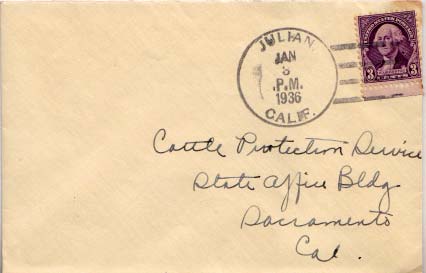 JULIAN,
JAN
3
P.M.
1936
CALIF.
UNITED STATES POSTAGE
3 3
CENTS
Cattle Protection Service
State Office Bldg
Sacramento
Cal.